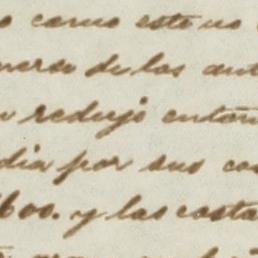 o como este no
nerse de los ant
n redujo enton
dia por sus co
600. y las costa